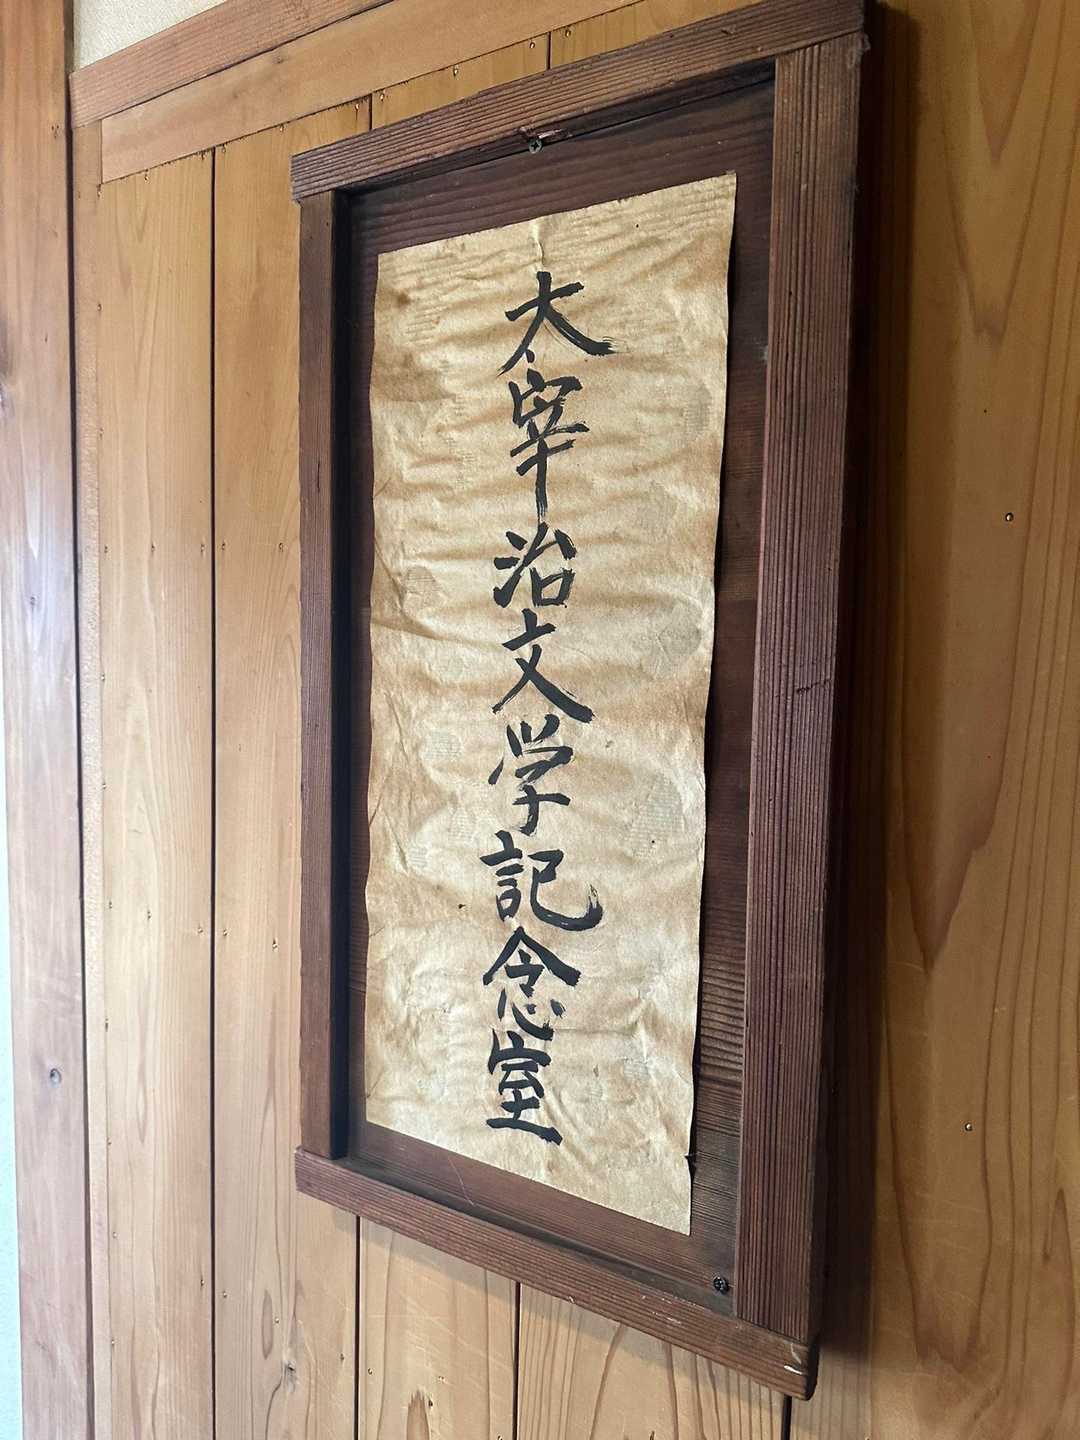 太宰治文学記念室